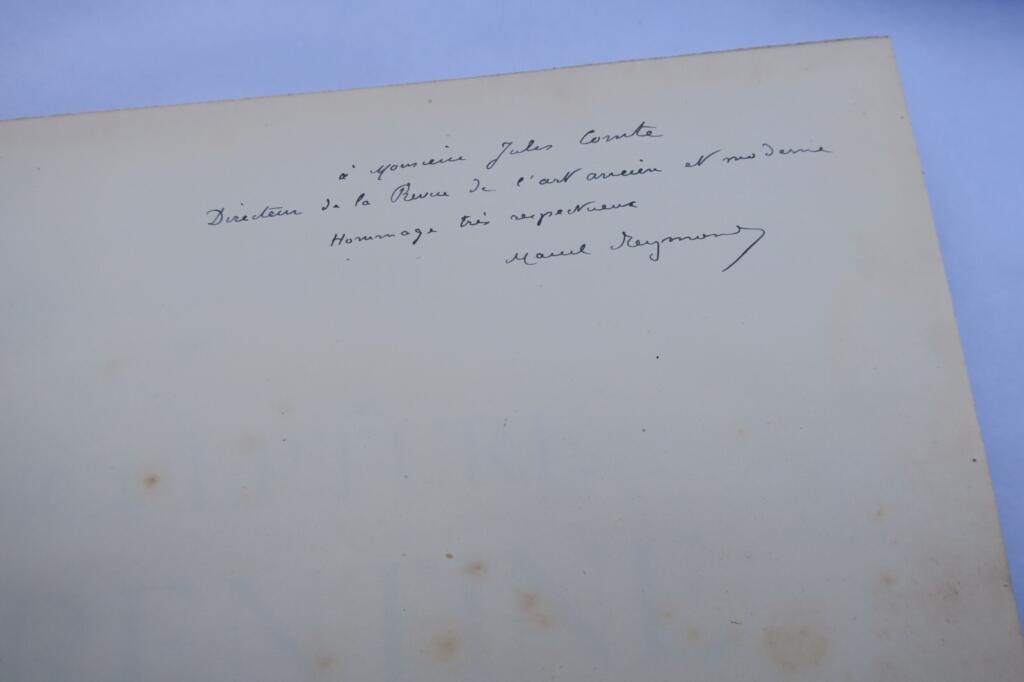 à Monsieur Jules Comte
Directeur de la Revue de l'art ancien et moderne
Hommage très respectueux
Marcel Reymond